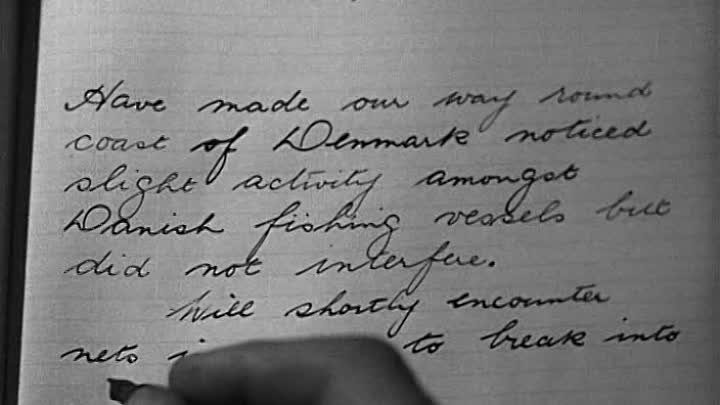 Have made our way round
coast of Denmark noticed
slight activity amongst
Danish fishing vessels but
did not interfere.
Will shortly encounter
nets to break into